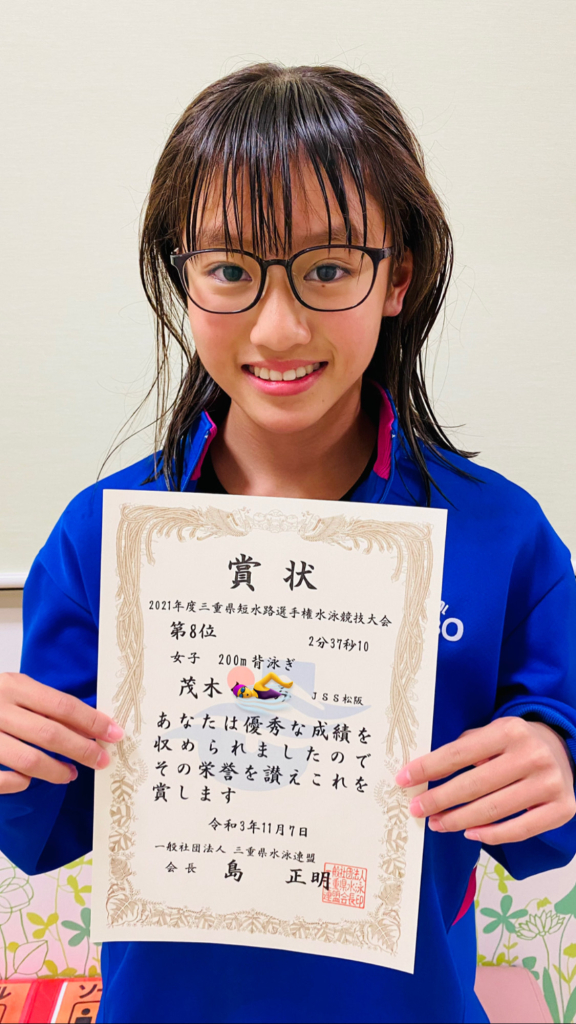 賞状
2021年度三重県短水路選手権水泳競技大会
第8位 2分37秒10
女子 200m背泳ぎ
茂木 JSS松阪
あなたは優秀な成績を
収められましたので
その栄誉を讃えこれを
賞します
令和3年11月7日
一般社団法人 三重県水泳連盟
会長 島 正明
一般社団法人
三重県水泳
連盟会長印